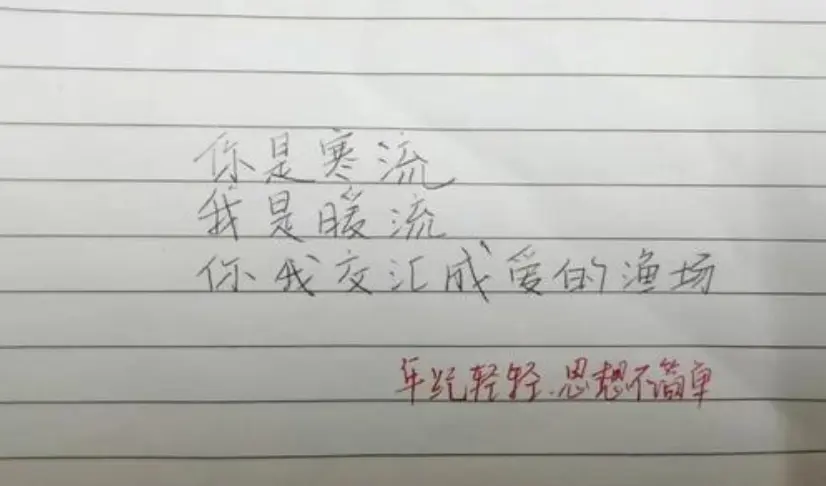 你是寒流
我是暖流
你我交汇成爱的渔场
年纪轻轻.思想不简单